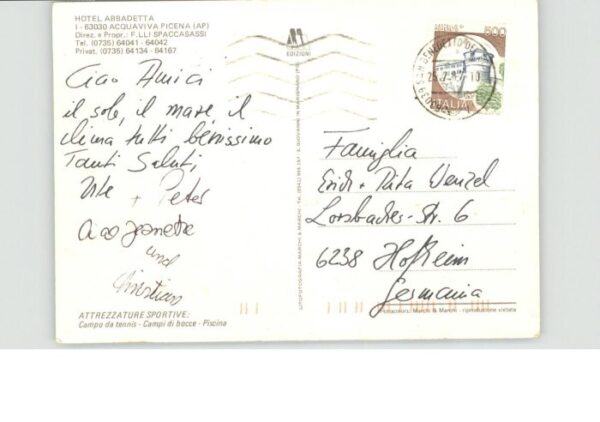 HOTEL ABBADETTA
I - 63030 ACQUAVIVA PICENA (AP)
Direz. e Propr.: F.LLI SPACCASASSI
Tel. (0735) 64041 - 64042
Privat. (0735) 64134 - 64167
Ciao Amici
il sole, il mare, il
clima tutti benissimo
Tanti Saluti
Ute + Peter
Ciao Janette
und
Christian
ATTREZZATURE SPORTIVE:
Campo da tennis - Campi di bocce - Piscina
EDIZIONI
LITOFOTOGRAFIA MARCHI & MARCHI - TEL.
500
ITALIA
Famiglia
Erich + Rita Wenzel
Lorsbacher-Str. 6
6238 Hofheim
Germania
Marchi & Marchi - riproduzione vietata